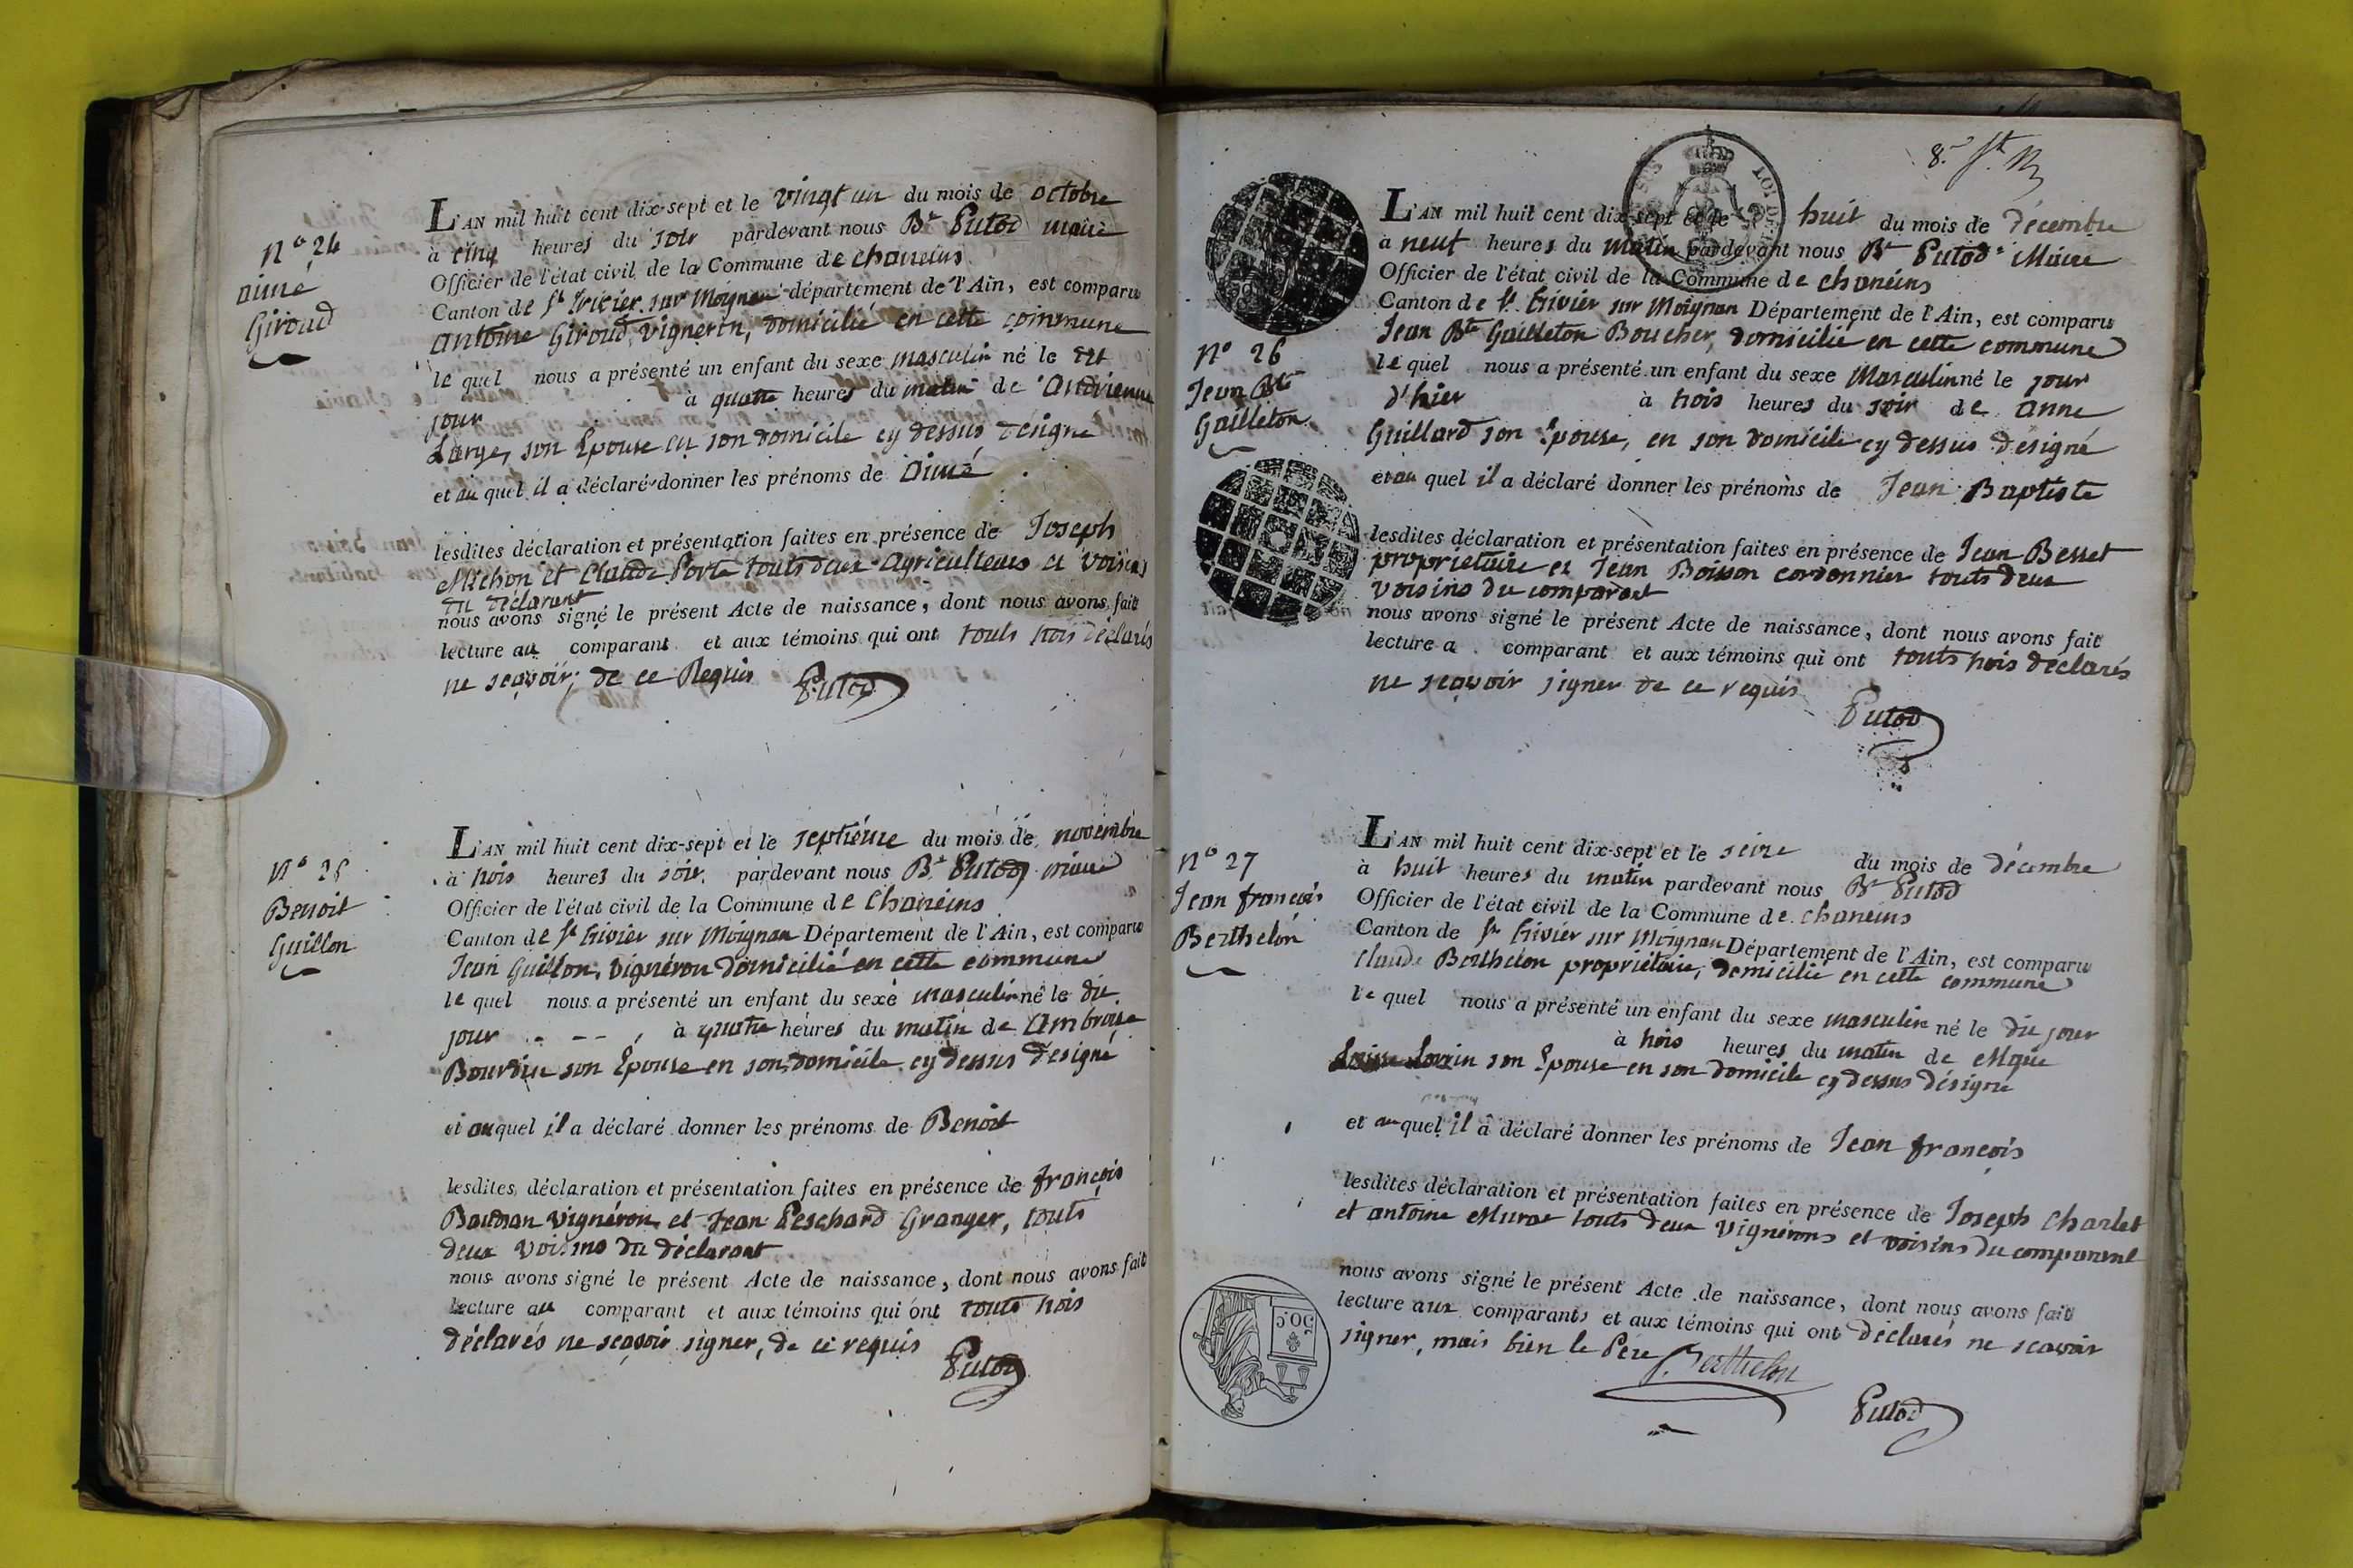 N° 24
aimé
Giroud
L'AN mil huit cent dix-sept et le vingt un du mois de octobre
à cinq heures du soir pardevant nous Bt Putod maire
Officier de l'état civil de la Commune de chaneins
Canton de St trivier sur Moignan département de l'Ain, est comparu
antoine Giroud, vigneron, domicilié en cette commune
le quel nous a présenté un enfant du sexe masculin né le dit
jour à quatre heures du matin de Andrienne
Large, son Epouse en son domicile cy dessus désigné
et au quel il a déclaré donner les prénoms de aimé
lesdites déclaration et présentation faites en présence de Joseph
Michon et Claude Porte touts deux agriculteurs et voisins
du déclarant
nous avons signé le présent Acte de naissance, dont nous avons fait
lecture au comparant et aux témoins qui ont touts trois déclarés
ne sçavoir, de ce Requis Putod
N° 25
Benoit
Guillon
L'AN mil huit cent dix-sept et le septiéme du mois de novembre
à trois heures du soir pardevant nous Bt Putod maire
Officier de l'état civil de la Commune de Chaneins
Canton de St trivier sur Moignan Département de l'Ain, est comparu
Jean Guillon, vignéron domicilié en cette commune
le quel nous a présenté un enfant du sexe masculin né le dit
jour à quatre heures du matin de Ambroise
Bourdin son Epouse en son domicile cy dessus désigné
et au quel il a déclaré donner les prénoms de Benoit
lesdites déclaration et présentation faites en présence de françois
Baudran vignéron et Jean Peschard Granger, touts
deux voisins du déclarant
nous avons signé le présent Acte de naissance, dont nous avons fait
lecture au comparant et aux témoins qui ont touts trois
déclarés ne sçavoir signer, de ce requis
Putod
N° 26
Jean Bte
Gailleton
L'AN mil huit cent dix-sept et le huit du mois de décembre
à neuf heures du matin pardevant nous Bt Putod Maire
Officier de l'état civil de la Commune de chaneins
Canton de St trivier sur Moignan Département de l'Ain, est comparu
Jean Bte Gailleton Boucher, domicilié en cette commune
le quel nous a présenté un enfant du sexe Masculin né le jour
d'hier à trois heures du soir de anne
Guillard son Epouse, en son domicile cy dessus désigné
et au quel il a déclaré donner les prénoms de Jean Baptiste
lesdites déclaration et présentation faites en présence de Jean Besset
propriétaire et Jean Boisson cordonnier touts deux
voisins du comparant
nous avons signé le présent Acte de naissance, dont nous avons fait
lecture a comparant et aux témoins qui ont touts trois déclarés
ne sçavoir signer de ce requis
Putod
N° 27
Jean françois
Berthelon
L'AN mil huit cent dix-sept et le seize du mois de décembre
à huit heures du matin pardevant nous Bt Putod
Officier de l'état civil de la Commune de chaneins
Canton de St trivier sur Moignan Département de l'Ain, est comparu
Claude Berthelon propriétaire, domicilié en cette commune
le quel nous a présenté un enfant du sexe masculin né le dit jour
à trois heures du matin de Marie
son Epouse en son domicile cy dessus désigné
et au quel il a déclaré donner les prénoms de Jean françois
lesdites déclaration et présentation faites en présence de Joseph Charlet
et antoine Murat touts deux vignérons et voisins du comparant
nous avons signé le présent Acte de naissance, dont nous avons fait
lecture aux comparants et aux témoins qui ont déclarés ne scavoir
signer, mais bien le Pére Berthelon
Putod
50.C